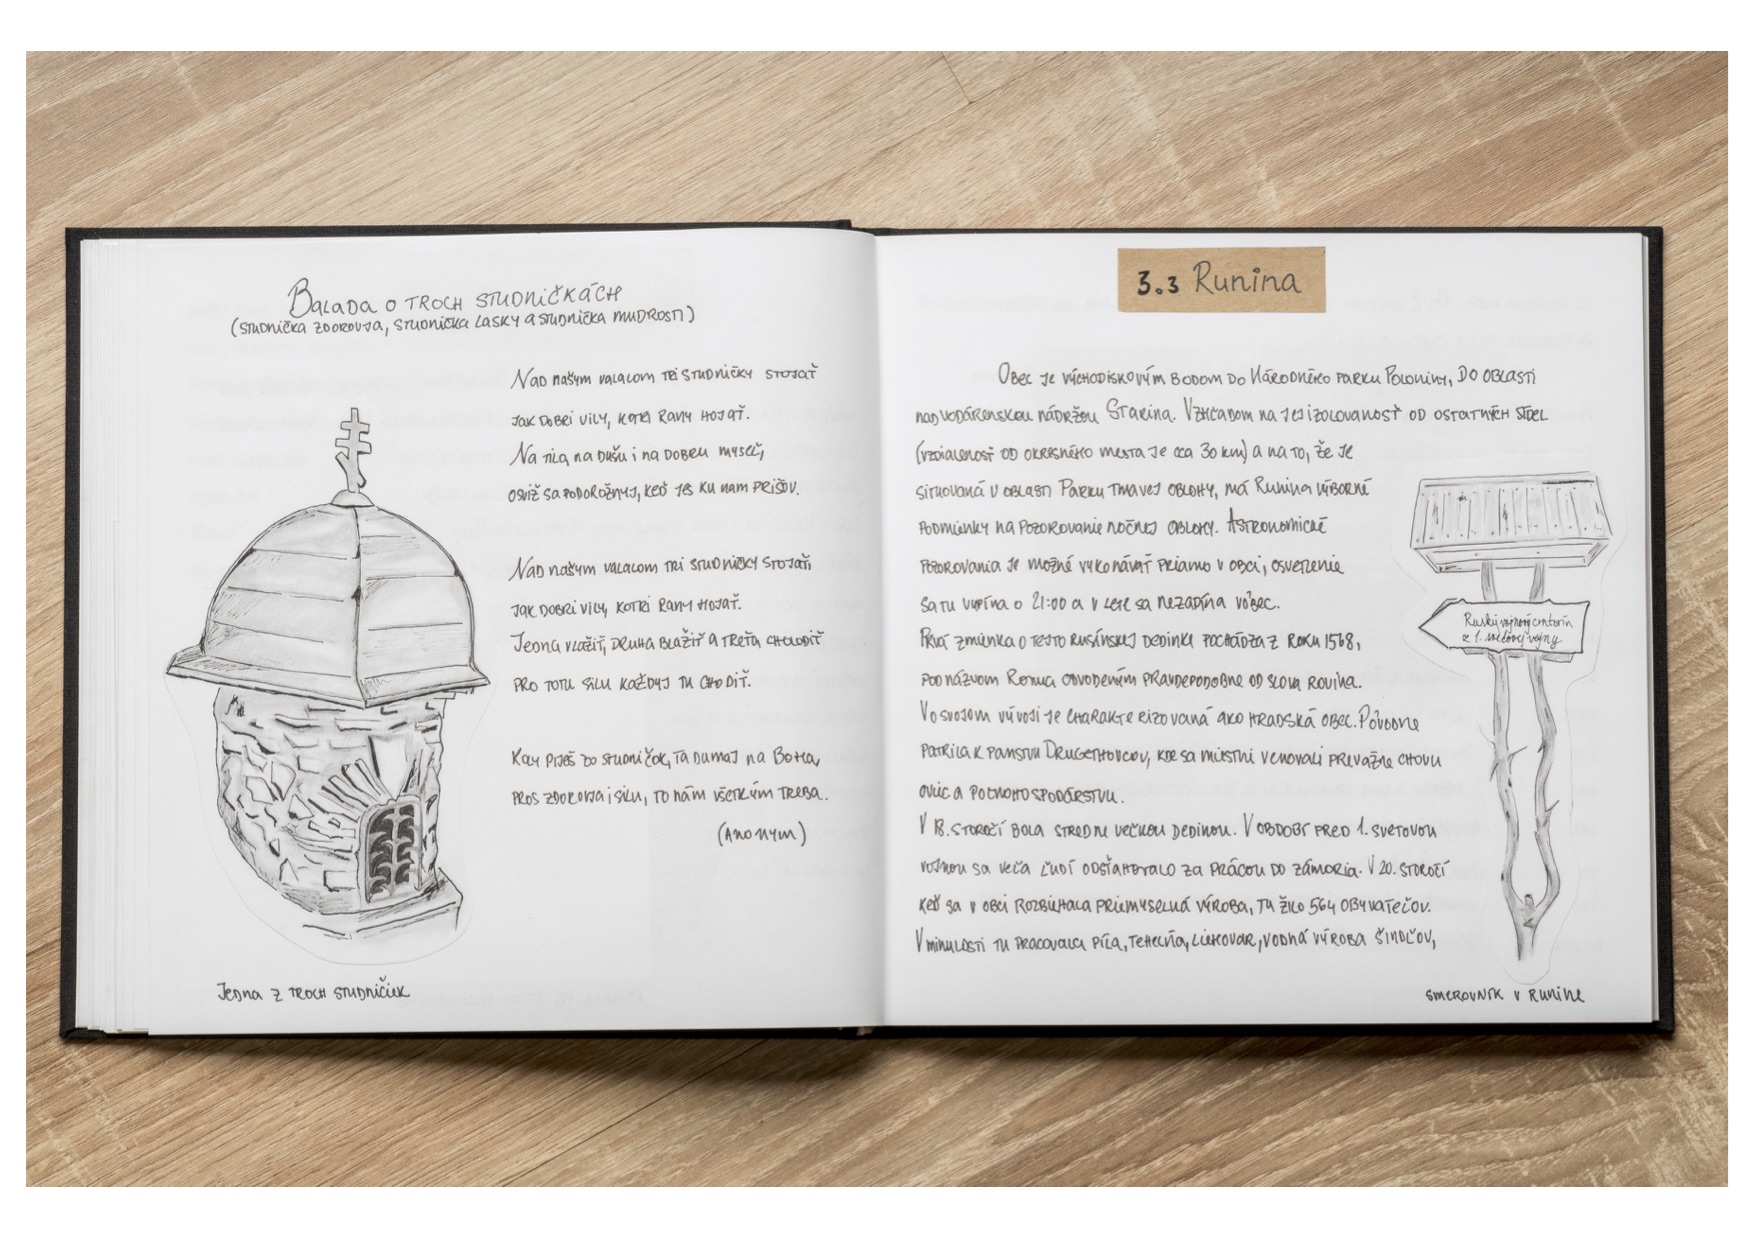 Balada o troch studničkách
(studnička zdorovja, studnička lasky a studnička mudrosti)
Nad našym valalom tri studničky stojať
jak dobri vily, kotri rany hojať.
Na tila, na dušu i na dobru mysеľ,
osviž sa podorožnyj, keď jes ku nam prišov.
Nad našym valalom tri studničky stojať,
jak dobri vily, kotri rany hojať.
Jedna vlažiť, druha blažiť a treťa cholodiť
pro totu silu každyj tu chodiť.
Koly piješ zo studničok, ta dumaj na Boha,
pros zdorovja i silu, to nám všetkým treba.
(Anonym)
Jedna z troch studničiek
3.3 Runina
Obec je východiskovým bodom do Národného parku Poloniny, do oblasti
nad vodárenskou nádržou Starina. Vzhľadom na jej izolovanosť od ostatných sídel
(vzdialenosť od okresného mesta je cca 30 km) a na to, že je
situovaná v oblasti Parku tmavej oblohy, má Runina výborné
podmienky na pozorovanie nočnej oblohy. Astronomické
pozorovania je možné vykonávať priamo v obci, osvetlenie
sa tu vypína o 21:00 a v lete sa nezapína vôbec.
Prvá zmienka o tejto rusínskej dedinke pochádza z roku 1568,
pod názvom odvodeným pravdepodobne od slova rovina.
Vo svojom vývoji je charakterizovaná ako hradská obec. Pôvodne
patrila k panstvu Drugethovcov, kde sa miestni venovali prevažne chovu
oviec a poľnohospodárstvu.
V 18. storočí bola stredne veľkou dedinou. V období pred 1. svetovou
vojnou sa veľa ľudí odsťahovalo za prácou do zámoria. V 20. storočí
keď sa v obci rozbiehala priemyselná výroba, tu žilo 564 obyvateľov.
V minulosti tu pracovala píla, tehelňa, liehovar, vodná výroba šindľov,
Ruský vojnový cintorín
z 1. svetovej vojny
smerovník v Runine